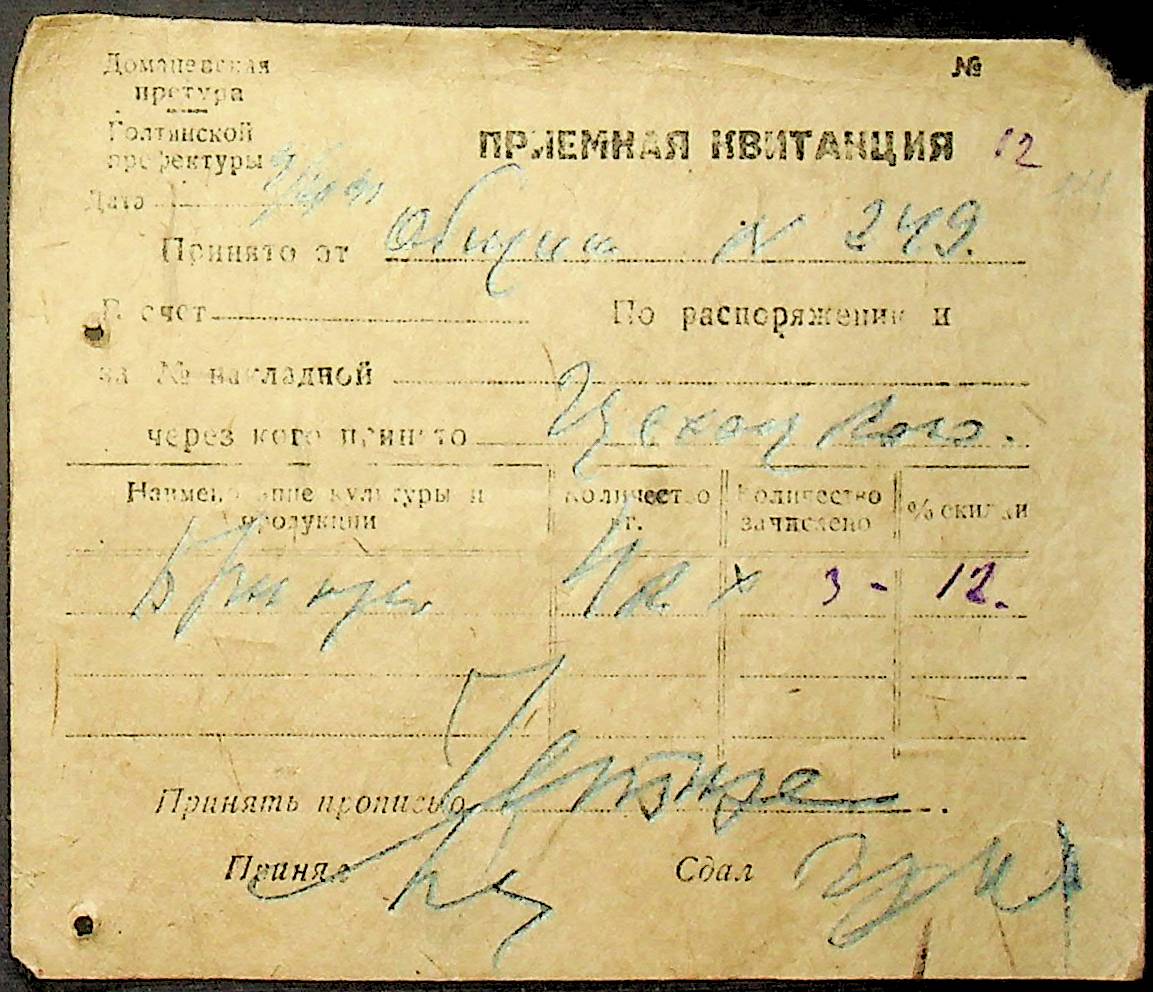 Доманевская
претура
Голтянской
префектуры
№
ПРИЕМНАЯ КВИТАНЦИЯ 12
Дата
Принято от Общин N 249.
В счет По распоряжению и
за № накладной
через кого принято
Наименование культуры и продукции
Количество кг.
Количество зачислено
% скидки
Брынзы 4 к. 3 - 12.
Принять прописью Четыре
Принял
Сдал